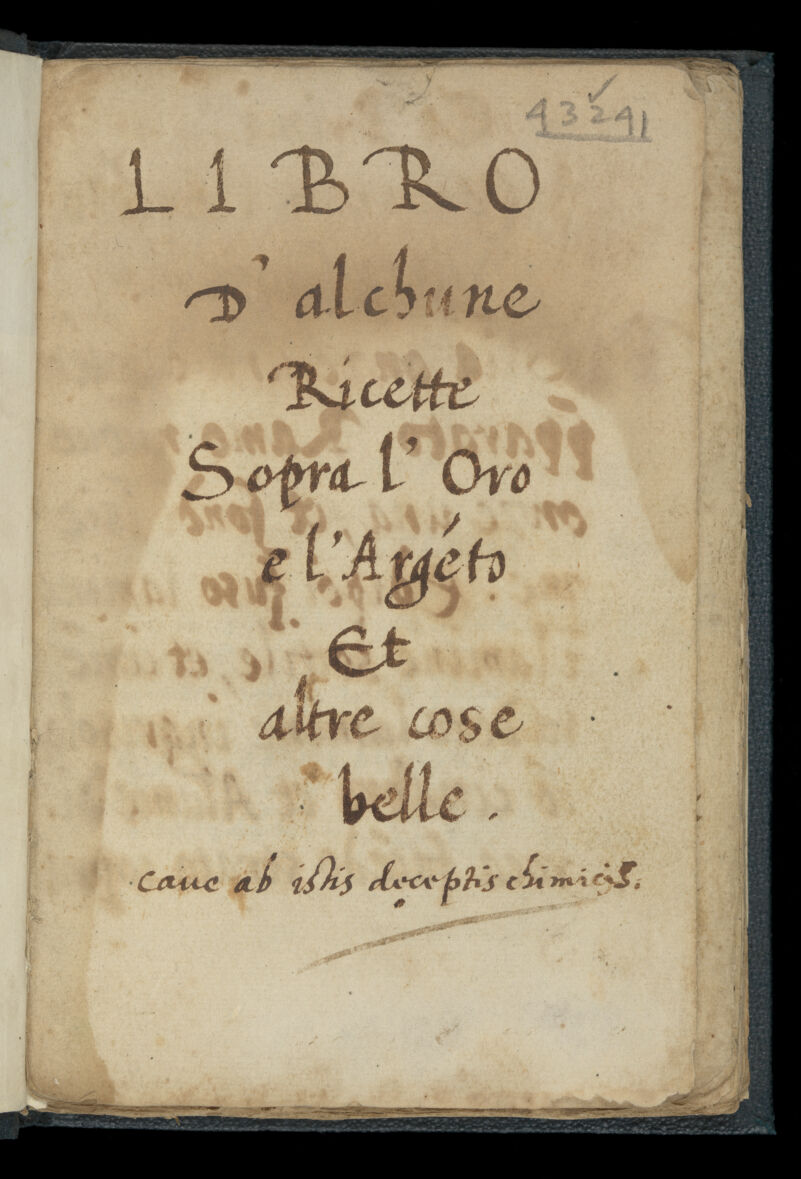 43241
LIBRO
D' alchune
Ricette
Sopra l' Oro
e l'Argéto
Et
altre cose
belle.
caue ab istis deceptis chimicis.